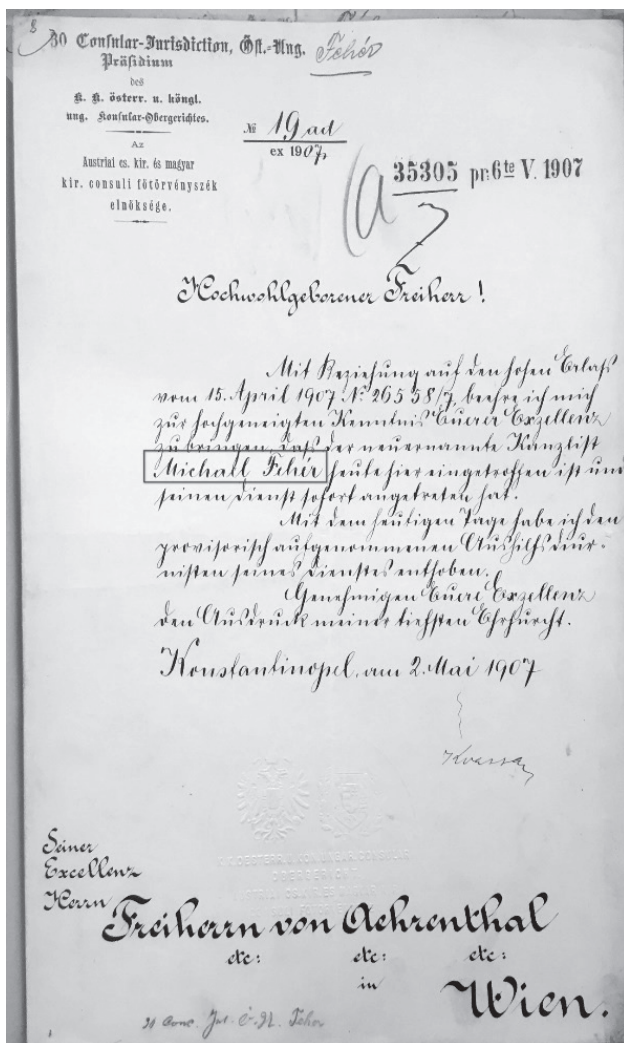 8
30 Consular-Jurisdiction, Öst.-Ung. Fehér
Präsidium
des
K. K. österr. u. köngl.
ung. Konsular-Obergerichtes.
Az
Austriai cs. kir. és magyar
kir. consuli főtörvényszék
elnöksége.
№ 19 ad
ex 1907
a 35305 pr: 6te V. 1907
7
Hochwohlgeborener Freiherr!
Mit Beziehung auf den hohen Erlaß
vom 15. April 1907 No 26558/7, beehre ich mich
zur hochgeneigten Kenntnis Euerer Exzellenz
zu bringen, daß der neuernannte Kanzlist
Michael Fehér heute hier eingetroffen ist und
seinen Dienst sofort angetreten hat.
Mit dem heutigen Tage habe ich den
provisorisch aufgenommenen Aushilfsdiur-
nisten seines Dienstes enthoben.
Genehmigen Euere Exzellenz
den Ausdruck meiner tiefsten Ehrfurcht.
Konstantinopel, am 2. Mai 1907
Seiner
Excellenz
Herrn
Freiherrn von Aehrenthal
etc: etc: etc:
in
Wien.